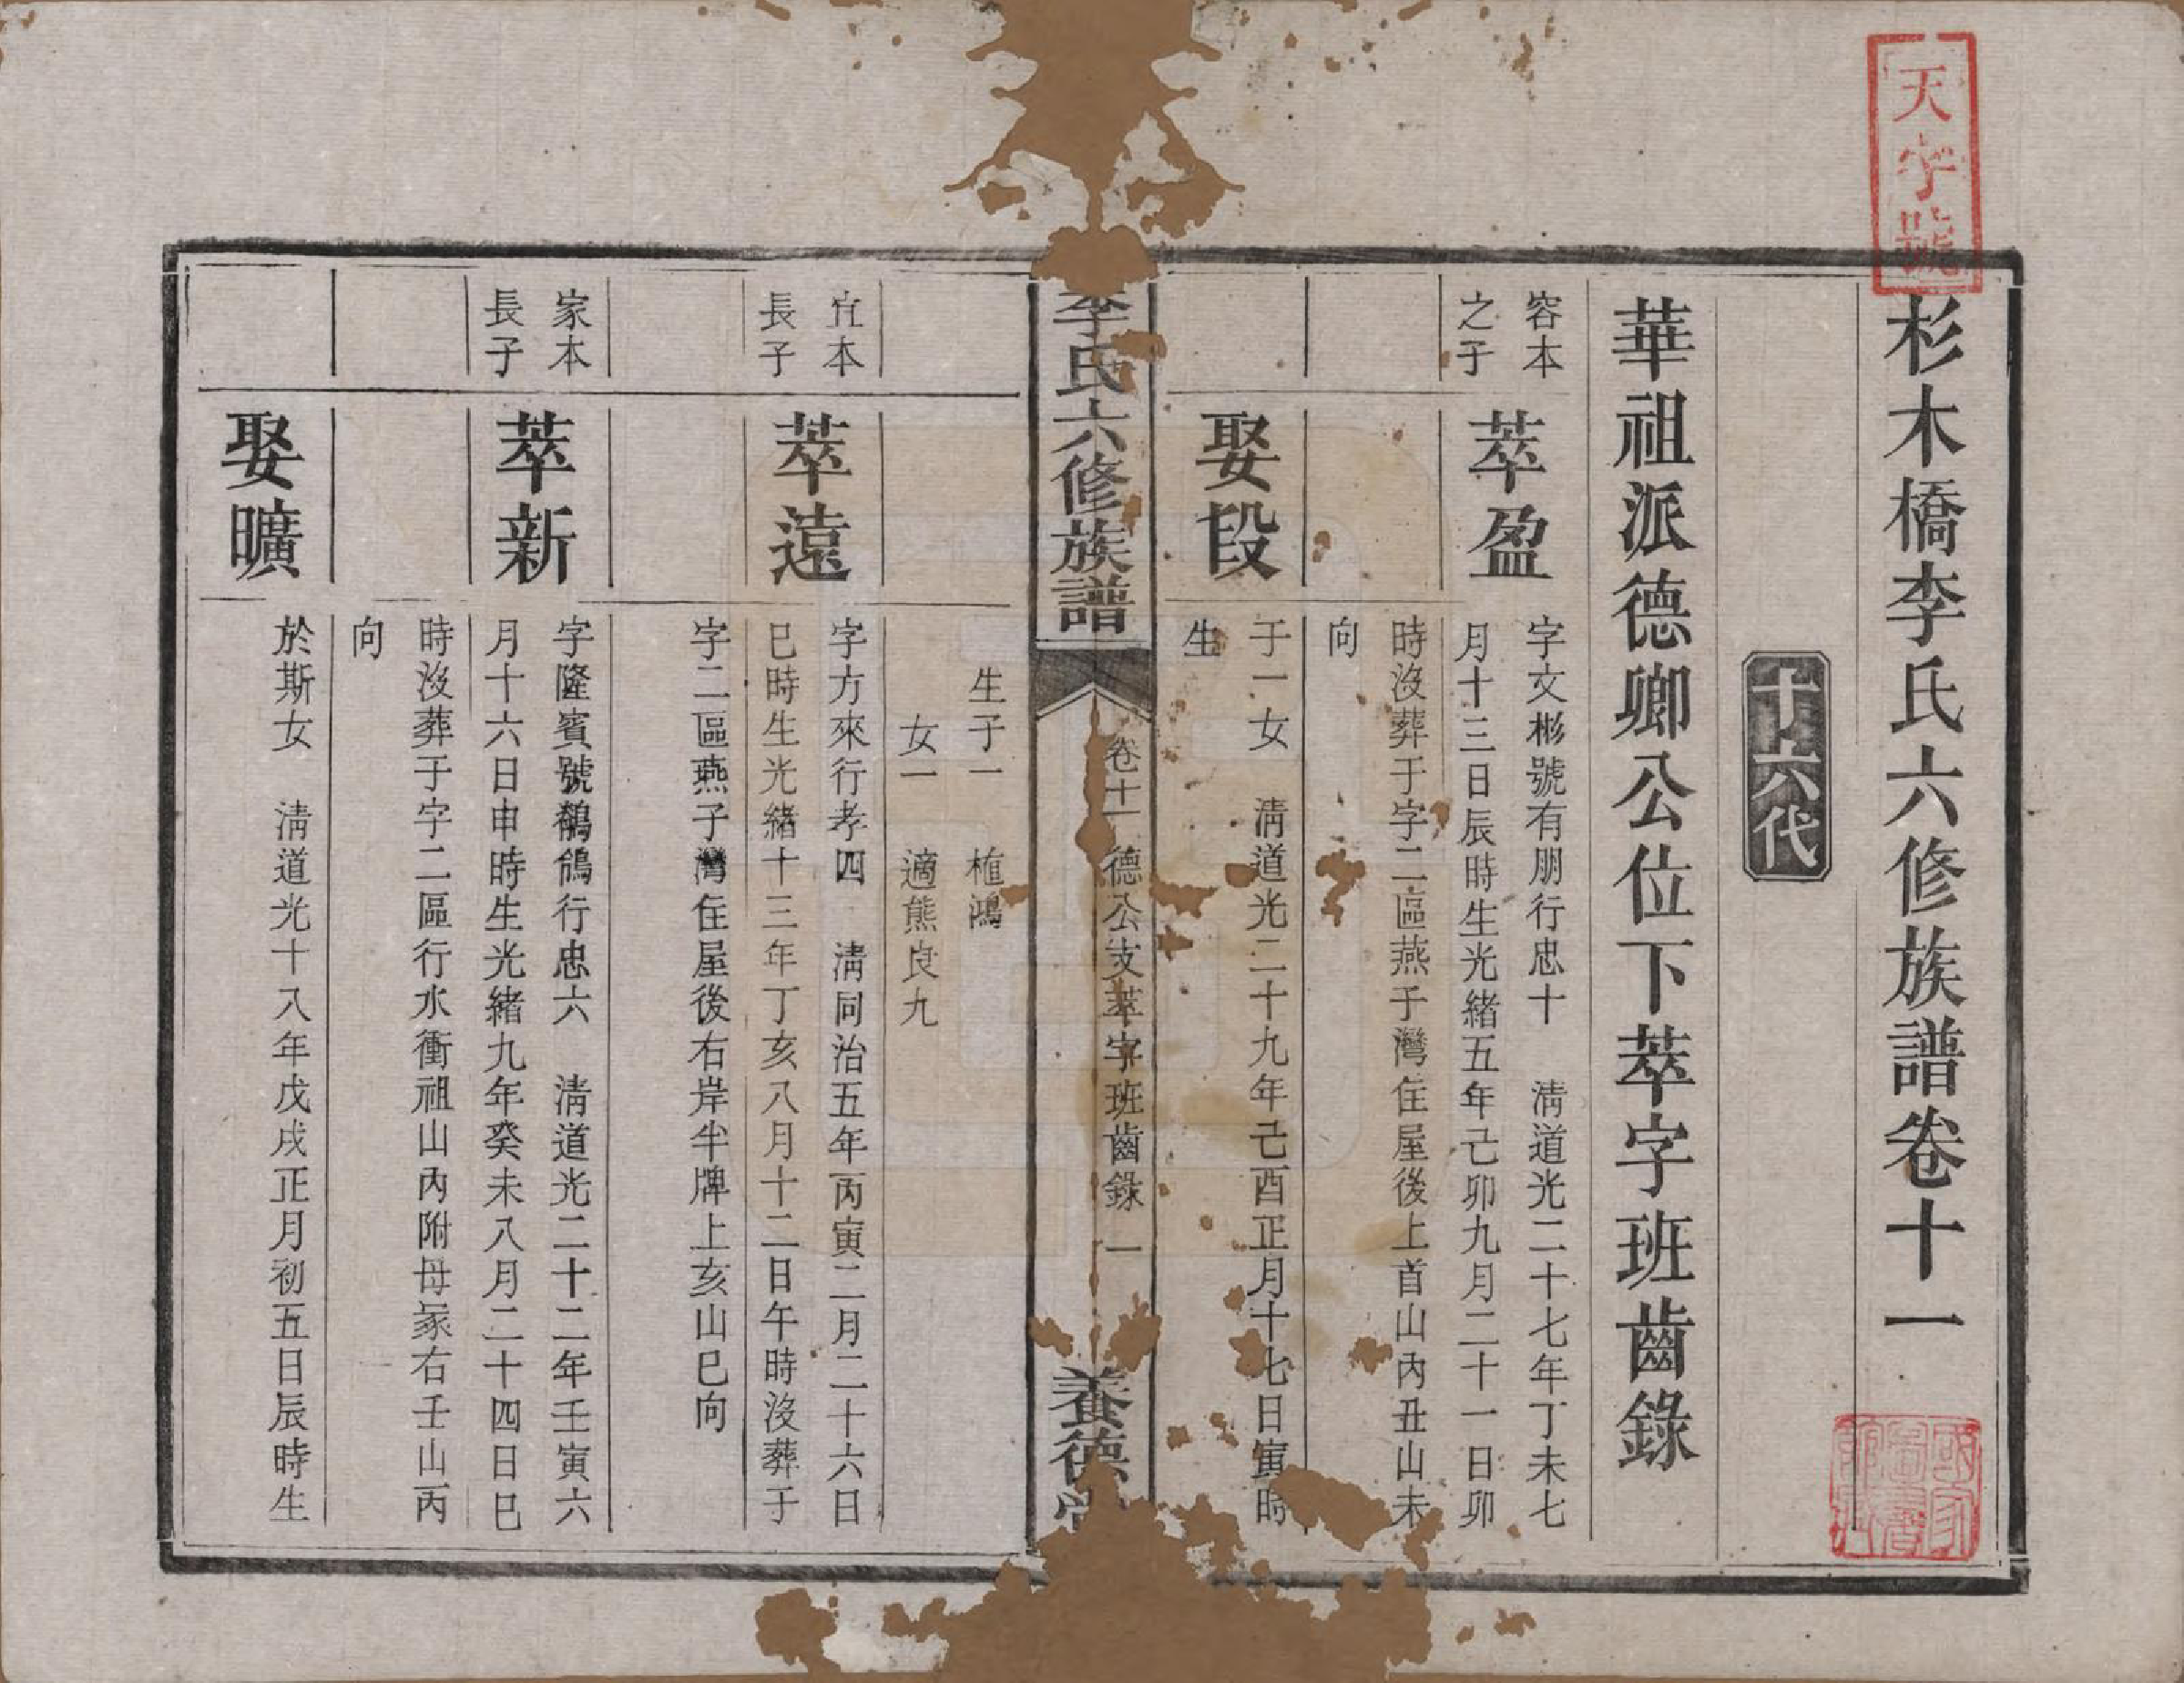 天字號
杉木橋李氏六修族譜卷十一
十六代
華祖派德卿公位下萃字班齒錄
容本
之子
萃盈
字文彬號有朋行忠十　清道光二十七年丁未七
月十三日辰時生光緒五年己卯九月二十一日卯
時沒葬于字二區燕子灣住屋後上首山內丑山未
向
娶段
于一女　清道光二十九年己酉正月十七日寅時
生
李氏六修族譜
卷十一　德公支萃字班齒錄　一
養德堂
生子一　植鴻
女一　適熊良九
宜本
長子
萃遠
字方來行孝四　清同治五年丙寅二月二十六日
巳時生光緒十三年丁亥八月十二日午時沒葬于
字二區燕子灣住屋後右岸半牌上亥山巳向
家本
長子
萃新
字隆賓號鶺鴒行忠六　清道光二十二年壬寅六
月十六日申時生光緒九年癸未八月二十四日巳
時沒葬于字二區行水衝祖山內附母冢右壬山丙
向
娶曠
於斯女　清道光十八年戊戌正月初五日辰時生